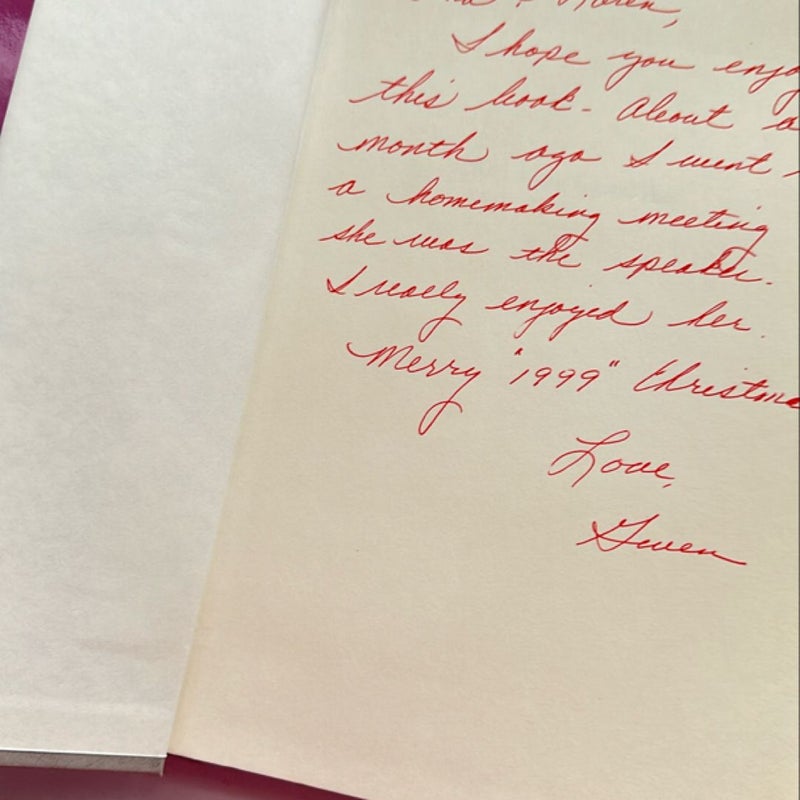 & Karen,
I hope you enjo
this book - About a
month ago I went
a homemaking meeting
she was the speaker.
I really enjoyed her.
Merry "1999" Christma
Love,
Gwen